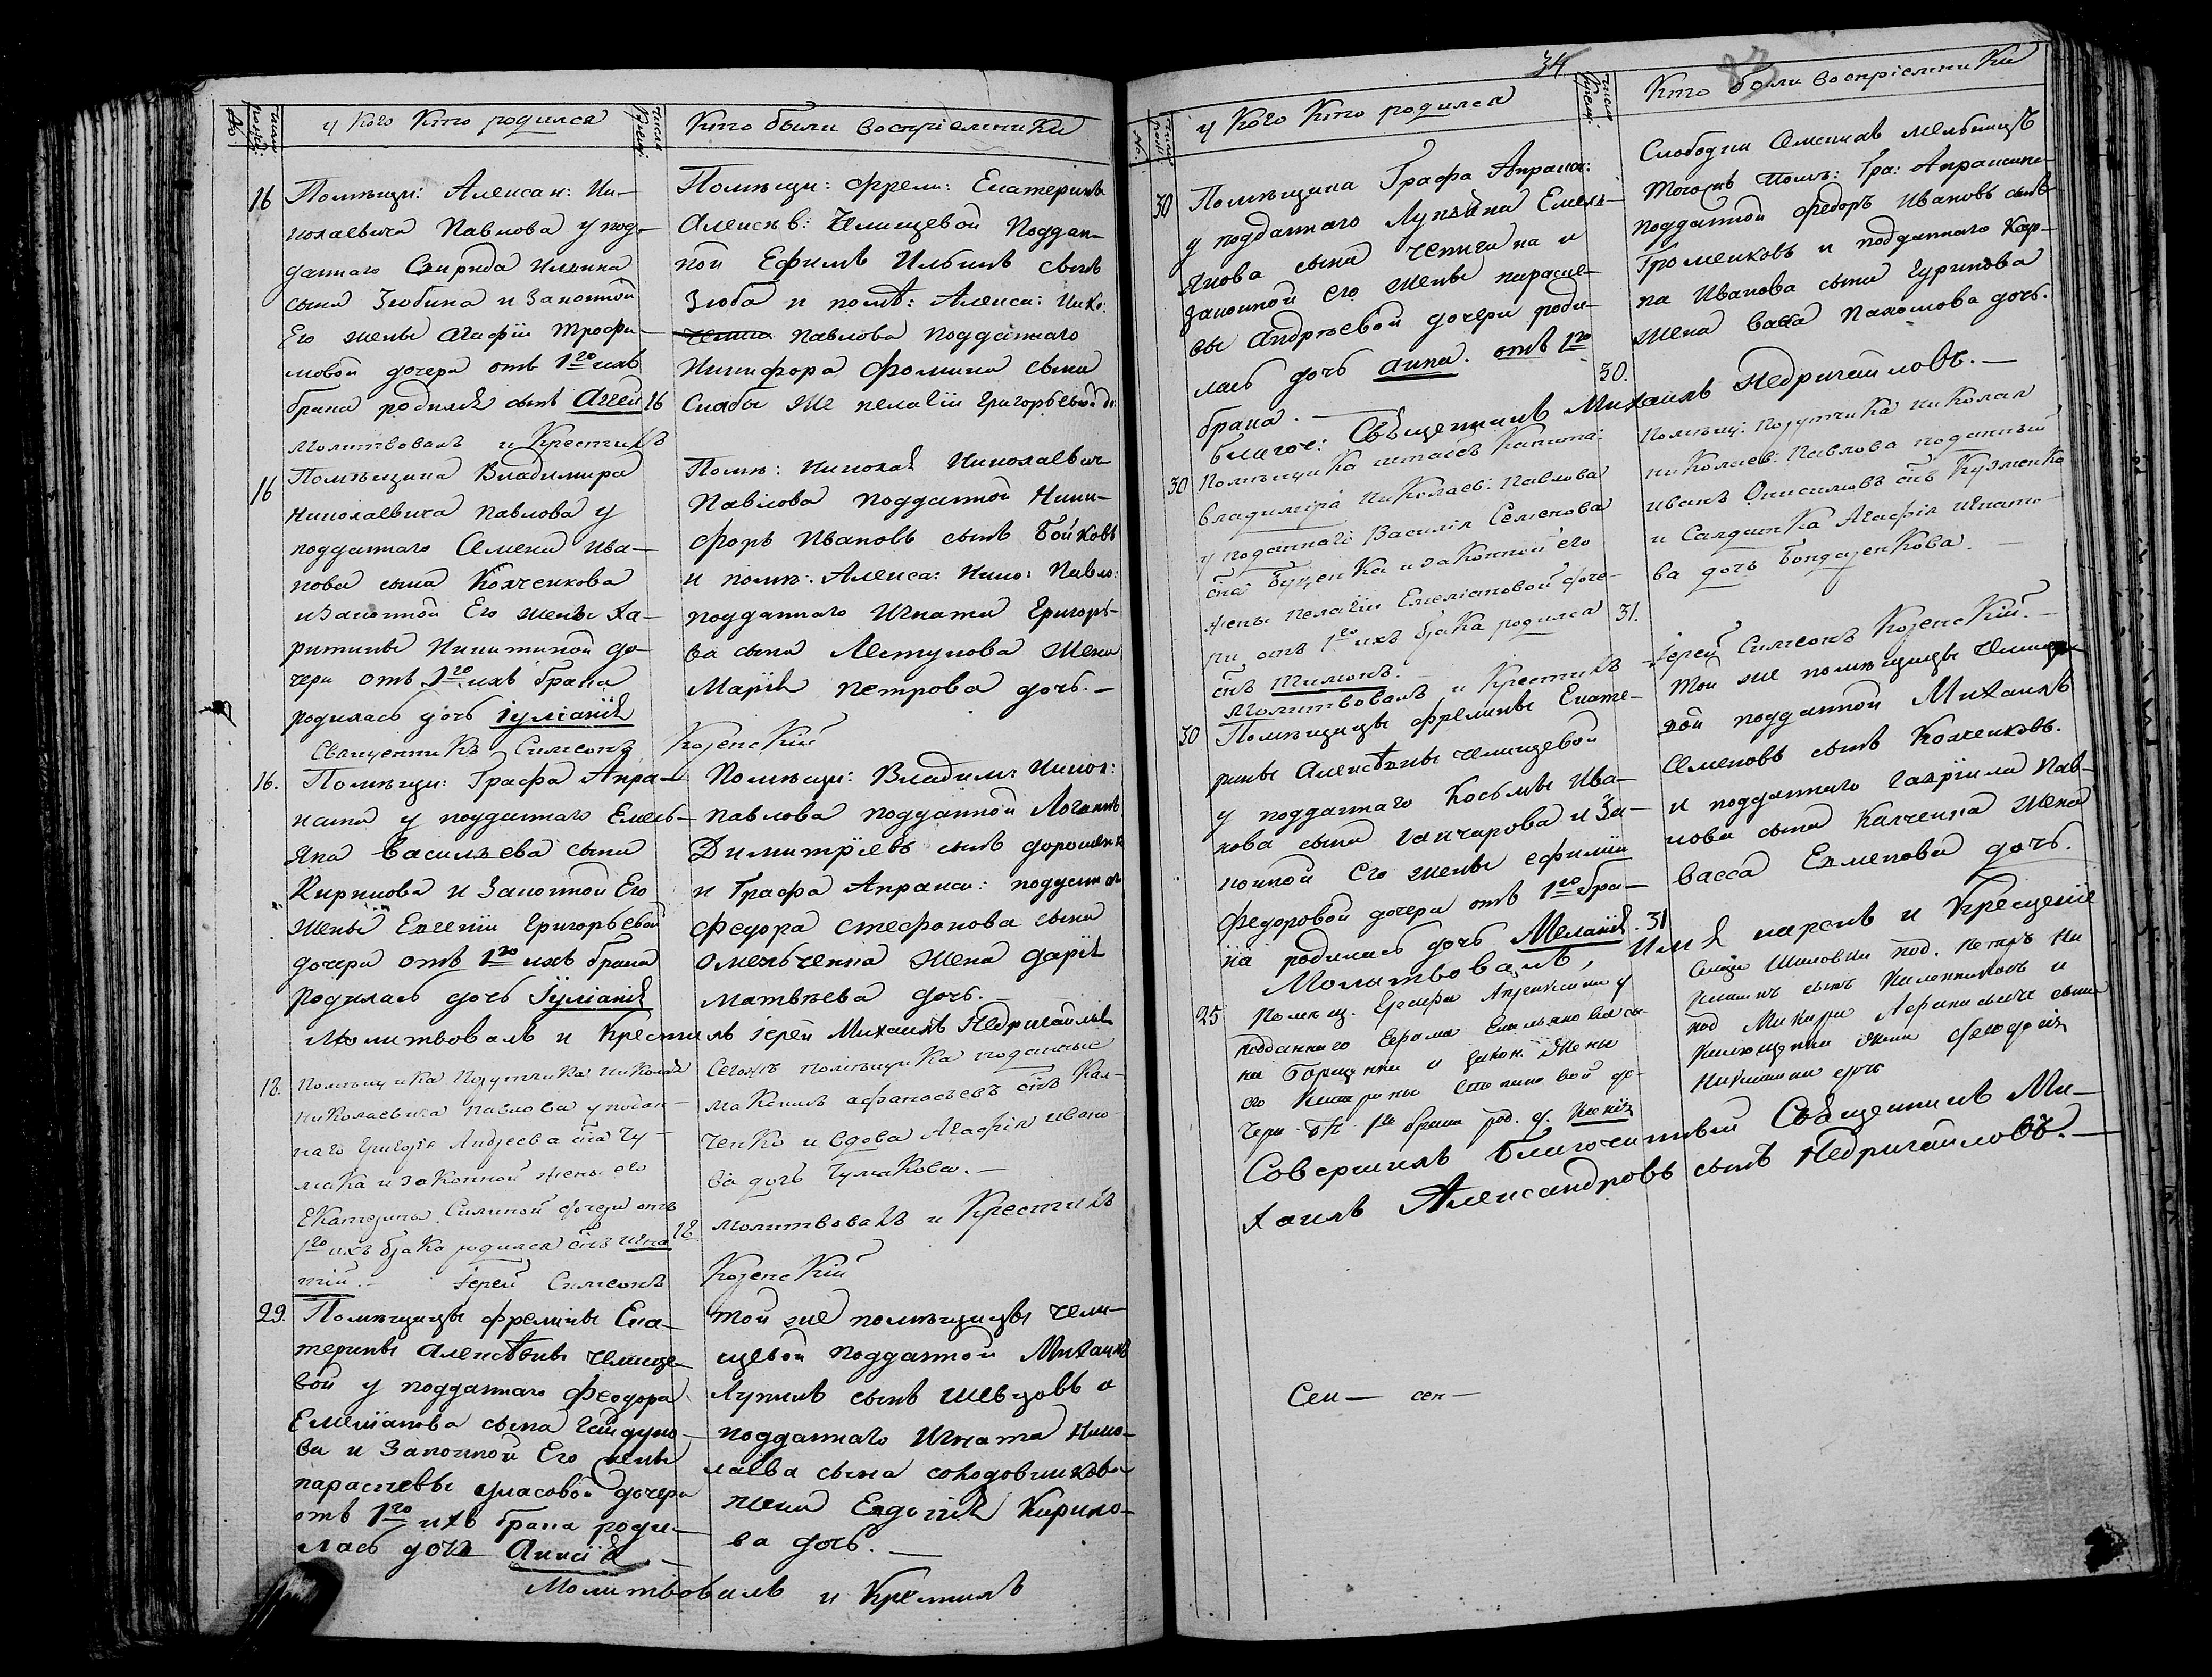 у кого кто родился
кто были воспріемники
16
Помѣщи: Алексан: Ни-
колаевича Павлова у под-
даннаго Свирида Ильина
сына Зюбина и законной
Его жены Агафіи Трофи-
мовой дочери отъ 1го ихъ
брака родился сынъ Аггей
16
Помѣщи: фрели: Екатерины
Алексѣв: Челищевой Поддан-
ной Ефимъ Ильинъ сынъ
Зюба и помѣ: Алекси: Нико:
Павлова подданнаго
Никифора Фомина сына
Слабы же Пелагіи Григорьевой до:
Молитвовалъ и Крестилъ
16
Помѣщика Владимира
Николаевича Павлова у
подданнаго Семена Ива-
нова сына Колченкова
и законной Его жены Ха-
ритины Никитиной до-
чери отъ 1го ихъ брака
родилась дочь Іуліанія
Помѣ: Николая Николаевича
Павлова подданной Ники-
форъ Ивановъ сынъ Бойковъ
и помѣ: Алекса: Нико: Павло:
подданнаго Игната Григорь-
ва сына Лестунова жена
Марія Петрова дочь.-
Священникъ Симеонъ Козенскій
16.
Помѣщи: Графа Апра-
ксина у подданнаго Емель-
яна Васильева сына
Кирикова и законной Его
жены Евгеніи Григорьевой
дочери отъ 1го ихъ брака
родилась дочь Іуліанія
Помѣщи: Владим: Никол:
Павлова подданной Логвинъ
Димитріевъ сынъ Дорошенк
и Графа Апракси: подданнаго
Федора Стефанова сына
Омельченка жена Дарія
Матвѣева дочь.-
Молитвовалъ и Крестилъ Іерей Михаилъ Недригайловъ
18.
Помѣщика Порутчика Николая
Николаевича Павлова у подан-
наго Григорія Андреева сна Чу-
мака и законной жены его
Екатерины Силиной дочери отъ
1го ихъ брака родился снъ Игна
тій.-
18
Сегожъ помѣщика поданные
Максимъ Афанасьевъ снъ Кал-
ченко и вдова Агафія Ивано-
ва дочь Чумакова.-
Молитвовалъ и Крестилъ
Іерей Симеонъ Козенскій
29.
Помѣщицы фрелины Ека-
терины Алексѣвны Челище-
вой у подданнаго Феодора
Емеліанова сына Гайдуко-
ва и законной Его жены
Параскевы Уласовой дочери
отъ 1го ихъ брака роди-
лась дочь Анисія.-
той же помѣщицы Чели-
щевой подданной Михаилъ
Лупинъ сынъ Шевцовъ и
подданнаго Игната Нико-
лаева сына Солодовникова
жена Евдокія Кирило-
ва дочь.-
Молитвовалъ и Крестилъ
34
у кого кто родился
кто были воспріемники
30
Помѣщика Графа Апракси:
у подданнаго Лукьяна Емель-
янова сына Чепигина и
законной его жены Параске-
вы Андрѣевой дочери роди-
лась дочь Анна. отъ 1го
брака.-
30.
Слободы
тогожъ Помѣ: Гра: Апраксина
подданной Федоръ Ивановъ сынъ
Громенковъ и подданнаго Кар-
па Иванова сына Гуринова
жена Васса Пахомова дочь.
Благоч: Священникъ Михаилъ Недригайловъ.-
30
Помѣщика штабсъ Капита:
Владиміра Николаев: Павлова
у поданнаго Василія Семенова
сна Буценка и законной его
жены Пелагіи Емеліановой доче-
ри отъ 1го ихъ брака родился
снъ Тимонъ.-
31.
Помѣщ: Порутчика Николая
Николаев: Павлова поданный
Иванъ Онисимовъ снъ Кузменко
и Салдатка Агафія Игнато-
ва дочь Бондаренкова.-
Молитвовалъ и Крестилъ Іерей Симеонъ Козенскій.-
30
Помѣщицы фрелины Екате-
рины Алексѣвны Челищевой
у подданнаго Косьмы Ива-
нова сына Ганчарова и за-
конной Его жены Ефиміи
Федоровой дочери отъ 1го бра-
ка родилась дочь Меланія.
31
Той же помѣщицы Челище
вой подданной Михаилъ
Семеновъ сынъ Колченковъ.
и подданнаго Гавріила Пав-
лова сына Калченка жена
Васса Евменова дочь.
Молитвовалъ, Имя нарекъ и Крещеніе
25
Помѣщ. Графа Апраксина у
подданнаго Ефрема Емельянова сы-
на Гарщенка и закон. жены
его
чери отъ 1го брака род. д. Ксенія
под. Петръ Ни
сынъ и
под Макара сына
жена Феодосія
дочь
Совершилъ Благочинный Священникъ Ми-
хаилъ Александровъ сынъ Недригайловъ.-
Сен- сен-